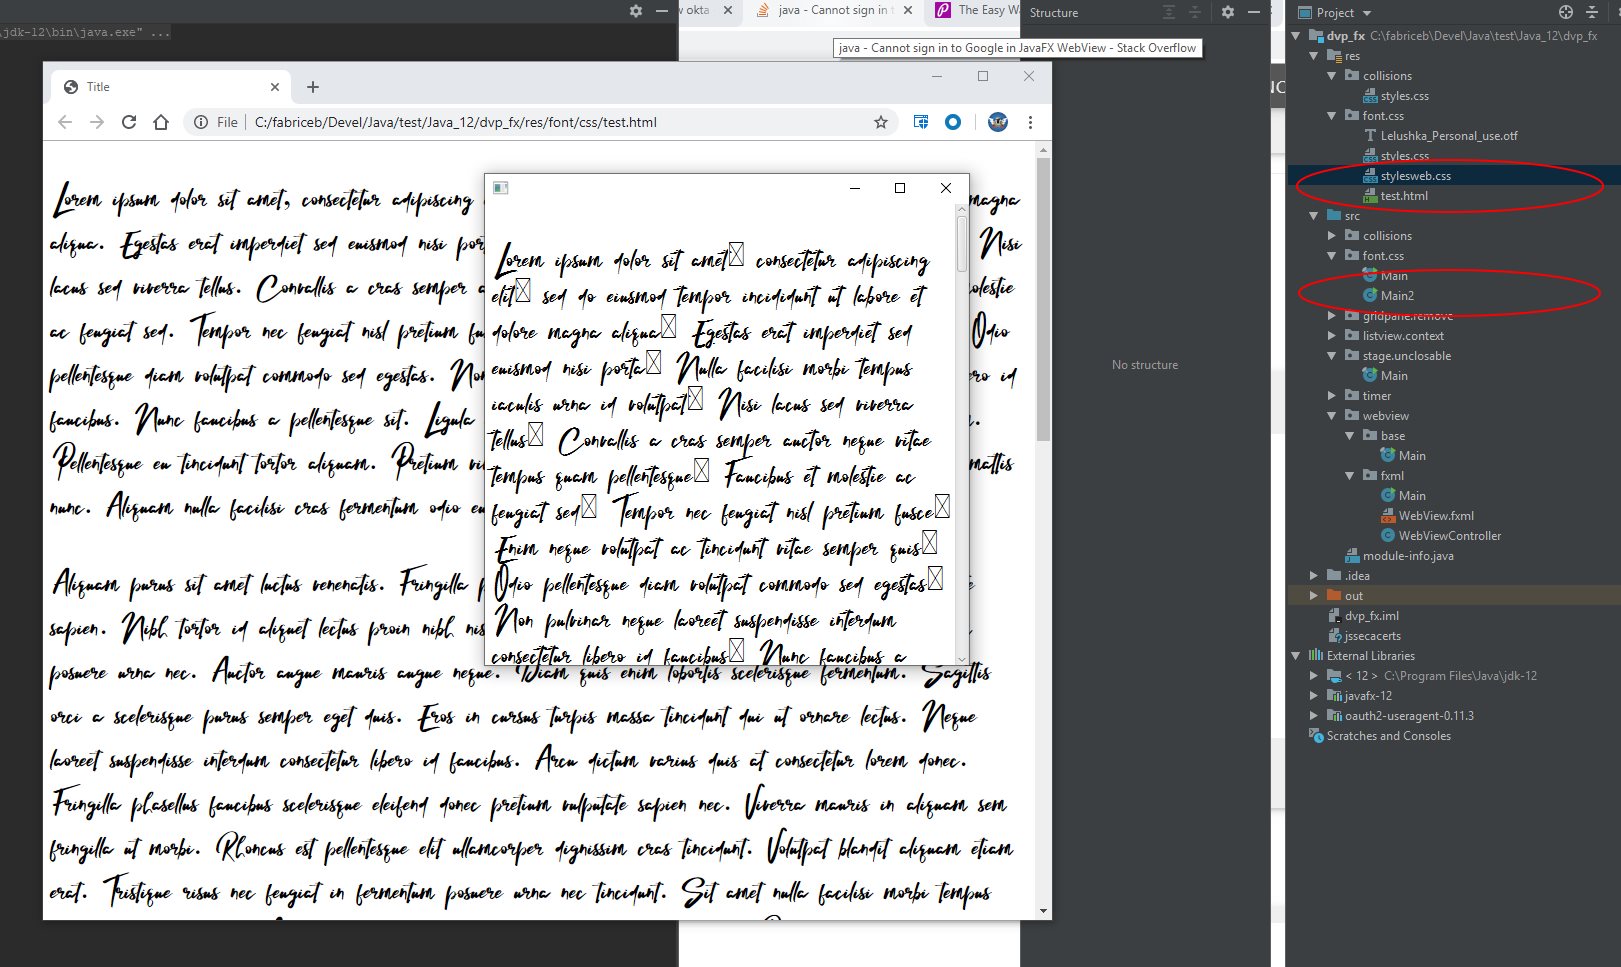 \jdk-12\bin\java.exe" ...
w okta
java - Cannot sign in t
The Easy Wa
java - Cannot sign in to Google in JavaFX WebView - Stack Overflow
Title
File
C:/fabriceb/Devel/Java/test/Java_12/dvp_fx/res/font/css/test.html
Lorem ipsum dolor sit amet, consectetur adipiscing
magna
aliqua. Egestas erat imperdiet sed euismod nisi por
Nisi
lacus sed viverra tellus. Convallis a cras semper a
olestie
ac feugiat sed. Tempor nec feugiat nisl pretium fu
Odio
pellentesque diam volutpat commodo sed egestas. Non
ro id
faucibus. Nunc faucibus a pellentesque sit. Ligula
Pellentesque eu tincidunt tortor aliquam. Pretium vi
mattis
nunc. Aliquam nulla facilisi cras fermentum odio eu
Aliquam purus sit amet luctus venenatis. Fringilla p
te
sapien. Nibh tortor id aliquet lectus proin nibh nis
posuere urna nec. Auctor augue mauris augue neque. Diam quis enim lobortis scelerisque fermentum. Sagittis
orci a scelerisque purus semper eget duis. Eros in cursus turpis massa tincidunt dui ut ornare lectus. Neque
laoreet suspendisse interdum consectetur libero id faucibus. Arcu dictum varius duis at consectetur lorem donec.
Fringilla phasellus faucibus scelerisque eleifend donec pretium vulputate sapien nec. Viverra mauris in aliquam sem
fringilla ut morbi. Rhoncus est pellentesque elit ullamcorper dignissim cras tincidunt. Volutpat blandit aliquam etiam
erat. Tristique risus nec feugiat in fermentum posuere urna nec tincidunt. Sit amet nulla facilisi morbi tempus
Lorem ipsum dolor sit amet consectetur adipiscing
elit sed do eiusmod tempor incididunt ut labore et
dolore magna aliqua Egestas erat imperdiet sed
euismod nisi porta Nulla facilisi morbi tempus
iaculis urna id volutpat Nisi lacus sed viverra
tellus Convallis a cras semper auctor neque vitae
tempus quam pellentesque Faucibus et molestie ac
feugiat sed Tempor nec feugiat nisl pretium fusce
Enim neque volutpat ac tincidunt vitae semper quis
Odio pellentesque diam volutpat commodo sed egestas
Non pulvinar neque laoreet suspendisse interdum
consectetur libero id faucibus Nunc faucibus a
Structure
No structure
Project
dvp_fx C:\fabriceb\Devel\Java\test\Java_12\dvp_fx
res
collisions
styles.css
font.css
Lelushka_Personal_use.otf
styles.css
stylesweb.css
test.html
src
collisions
font.css
Main
Main2
gridpane.remove
listview.context
stage.unclosable
Main
timer
webview
base
Main
fxml
Main
WebView.fxml
WebViewController
module-info.java
.idea
out
dvp_fx.iml
jssecacerts
External Libraries
< 12 > C:\Program Files\Java\jdk-12
javafx-12
oauth2-useragent-0.11.3
Scratches and Consoles